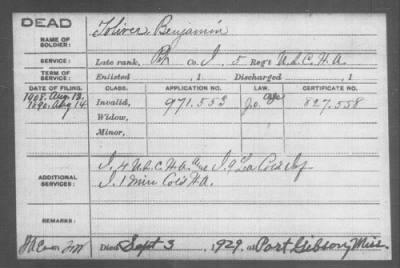 DEAD
NAME OF SOLDIER: Toliver, Benjamin
SERVICE: Late rank, Pvt Co. I, 5 Reg't U.S.C.H.A.
TERM OF SERVICE: Enlisted , 1 Discharged , 1
DATE OF FILING. CLASS. APPLICATION NO. LAW. CERTIFICATE NO.
1908. Aug. 13. Age
1890. Aug 14 Invalid, 971.553 827.558
Widow,
Minor,
I, 4 U.S.C.H.A. I, 9 La Cold Inf
ADDITIONAL SERVICES: I, 1 Miss Cold H.A.
REMARKS:
Died Sept 3, 1929, at Port Gibson, Miss.